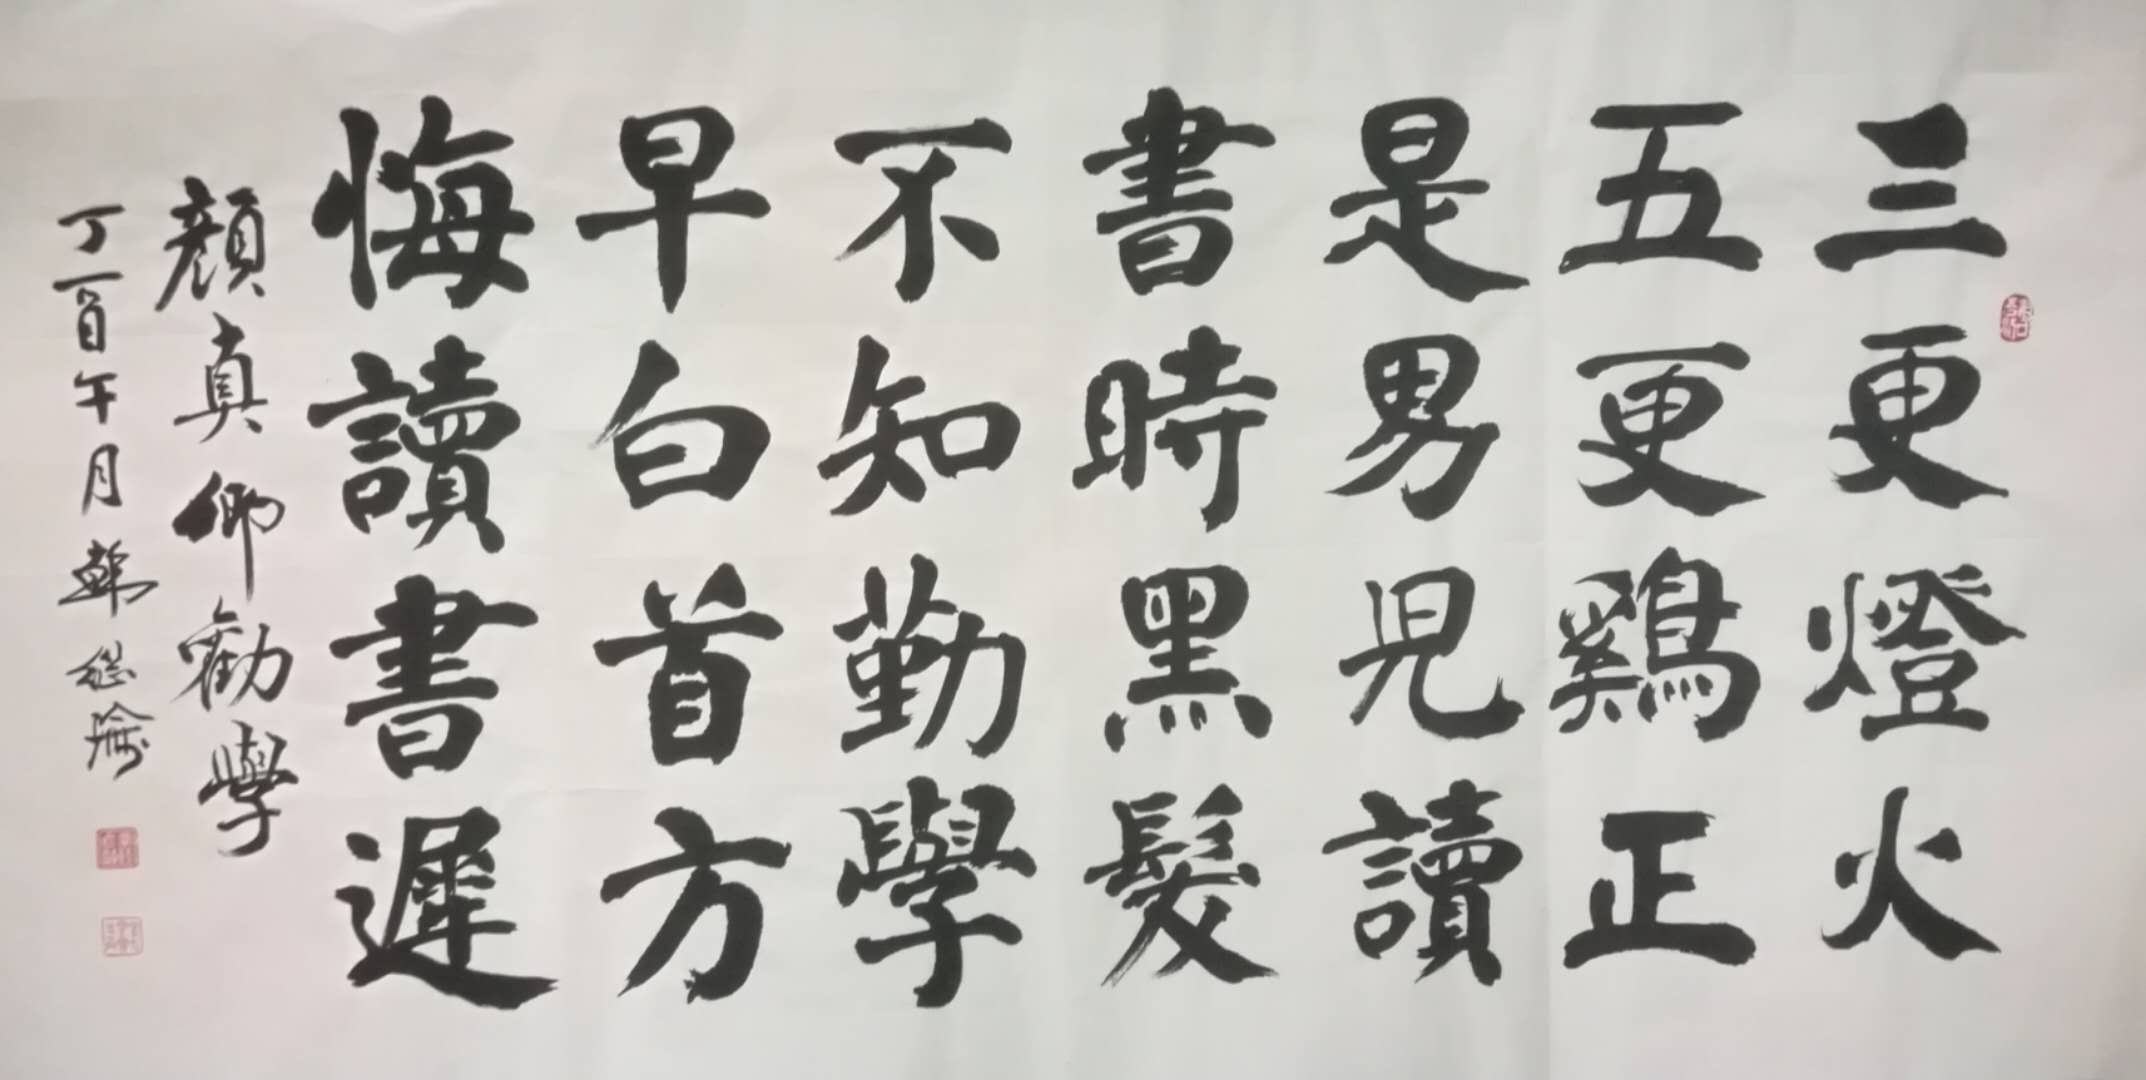 三更燈火
五更鷄正
是男児讀
書時黑髮
不知勤學
早白首方
悔讀書遲
顏真卿勸學
丁酉午月蘇繼瑜